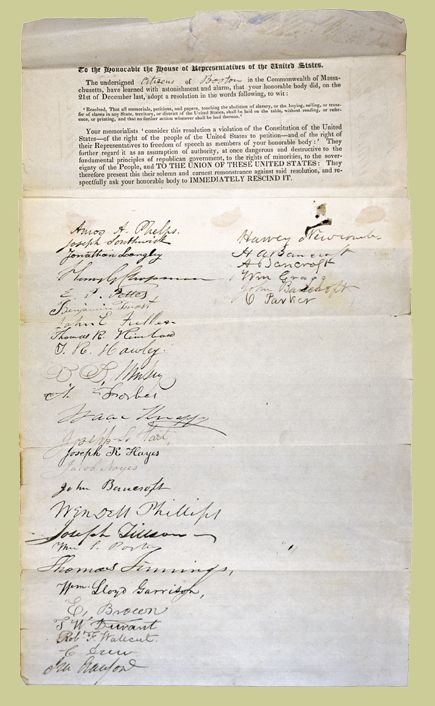 To the Honorable the House of Representatives of the United States.
The undersigned Citizens of Boston in the Commonwealth of Massa-
chusetts, have learned with astonishment and alarm, that your honorable body did, on the
21st of December last, adopt a resolution in the words following, to wit:
'Resolved, That all memorials, petitions, and papers, touching the abolition of slavery, or the buying, selling, or trans-
fer of slaves in any State, territory, or district of the United States, shall be laid on the table, without reading, or refer-
ence, or printing, and that no further action whatever shall be had thereon.'
Your memorialists 'consider this resolution a violation of the Constitution of the United
States—of the right of the people of the United States to petition—and of the right of
their Representatives to freedom of speech as members of your honorable body:' They
further regard it as an assumption of authority, at once dangerous and destructive to the
fundamental principles of republican government, to the rights of minorities, to the sover-
eignty of the People, and TO THE UNION OF THESE UNITED STATES: They
therefore present this their solemn and earnest remonstrance against said resolution, and re-
spectfully ask your honorable body to IMMEDIATELY RESCIND IT.
Amos A. Phelps.
Joseph Southwick
Jonathan Langley
Henry G. Chapman
John E. Fuller
Thomas R. Kimball
T. R. Hawley
Isaac Knapp
Joseph K Hayes
Jacob Hayes
John Bancroft
Wendell Phillips
Joseph Tillson
Thomas Jennings,
Wm. Lloyd Garrison,
E. Brown
Robt. F. Wallcut.
C Drew
Harvey Newcomb
H A Bancroft
A Bancroft
Wm Gragg
John Bancroft
C Parker